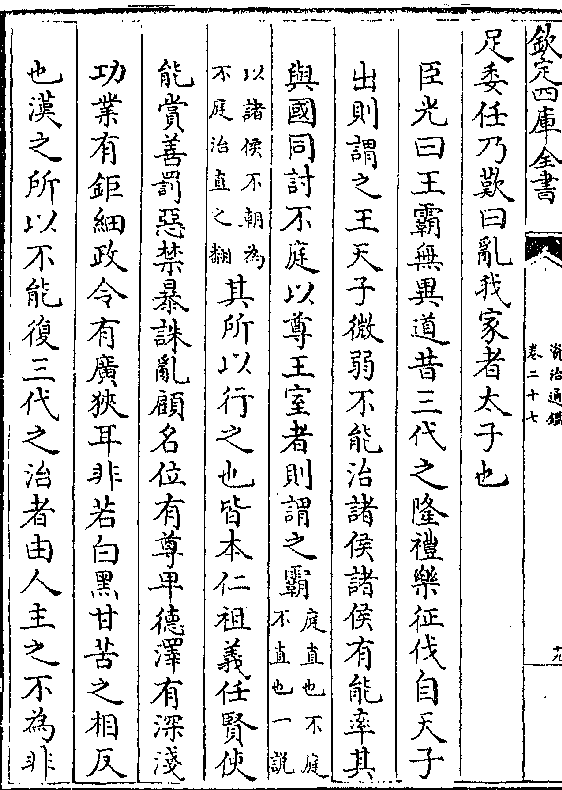 欽定四庫全書
資治通鑑
卷二十七
十九
足委任乃歎曰亂我家者太子也
臣光曰王霸無異道昔三代之隆禮樂征伐自天子
出則謂之王天子微弱不能治諸侯諸侯有能率其
與國同討不庭以尊王室者則謂之霸
庭直也不庭
不直也一説
以諸侯不朝為
不庭治直之翻
其所以行之也皆本仁祖義任賢使
能賞善罰惡禁暴誅亂顧名位有尊卑德澤有深淺
功業有鉅細政令有廣狹耳非若白黑甘苦之相反
也漢之所以不能復三代之治者由人主之不為非